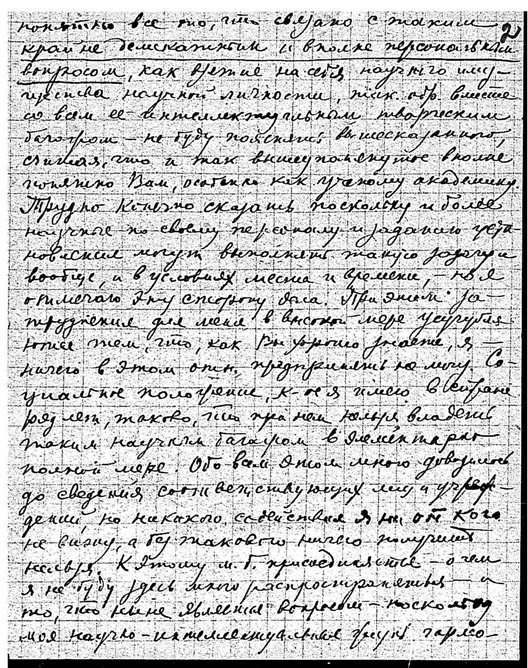 понятно все то, что связано с таким
2
крайне деликатным и вполне персональным
вопросом, как взятие на себя научного иму-
щества научной личности, так обр. вместе
со всем ее интеллектуальным творческим
багаром – не буду пояснять вышесказанного,
считая, что и так вышеупомянутое вполне
понятно Вам, особенно как ученому академику.
Трудно конечно сказать поскольку и более
научные по своему персоналу и заданию уста-
новления могут выполнять такую задачу
вообще, и в условиях места и времени, – но я
отмечаю эту сторону дела. При этом за-
труднения для меня в высокой мере усугубля-
ются тем, что, как Вы хорошо знаете, я –
ничего в этом отн. предпринять не могу. Со-
циальное положение, к-ое я имею в стране
ряд лет, таково, что при нем нельзя владеть
таким научным багаром в элементарно
полной мере. Обо всем этом мною доводилось
до сведения соответствующих лиц и учреж-
дений, но никакого содействия я ни от кого
не вижу, а без такового ничего получить
нельзя. К этому м. б. присоединяется – о чем
я не буду здесь много распространяться – и
то, что ныне является вопросом – поскольку
моя научно-интеллектуальная